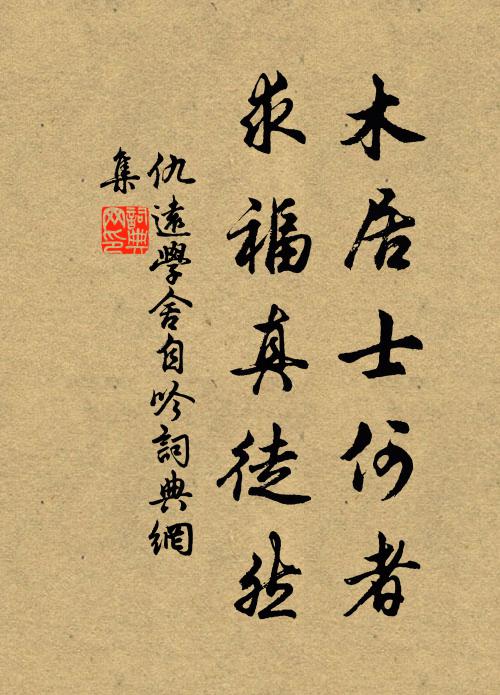 木居士何者
求福真徒然
仇遠學舍自吟詞典網
集
詞典
网印